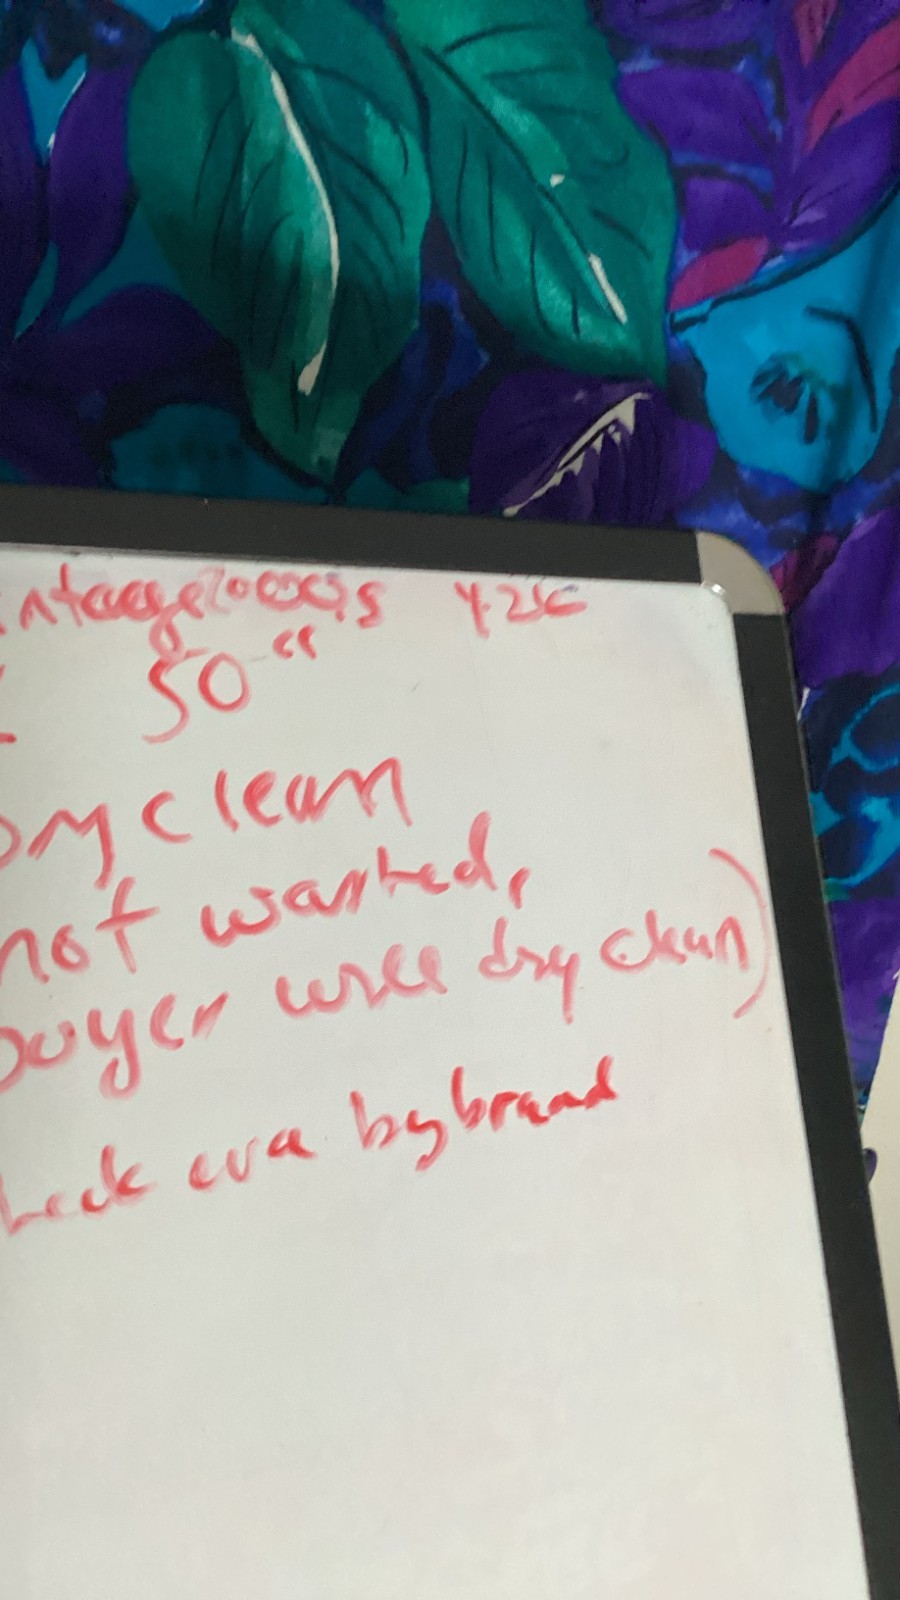 intage 2000s Y2K
50"
Dry clean
not washed,
buyer will dry clean)
heck era by brand